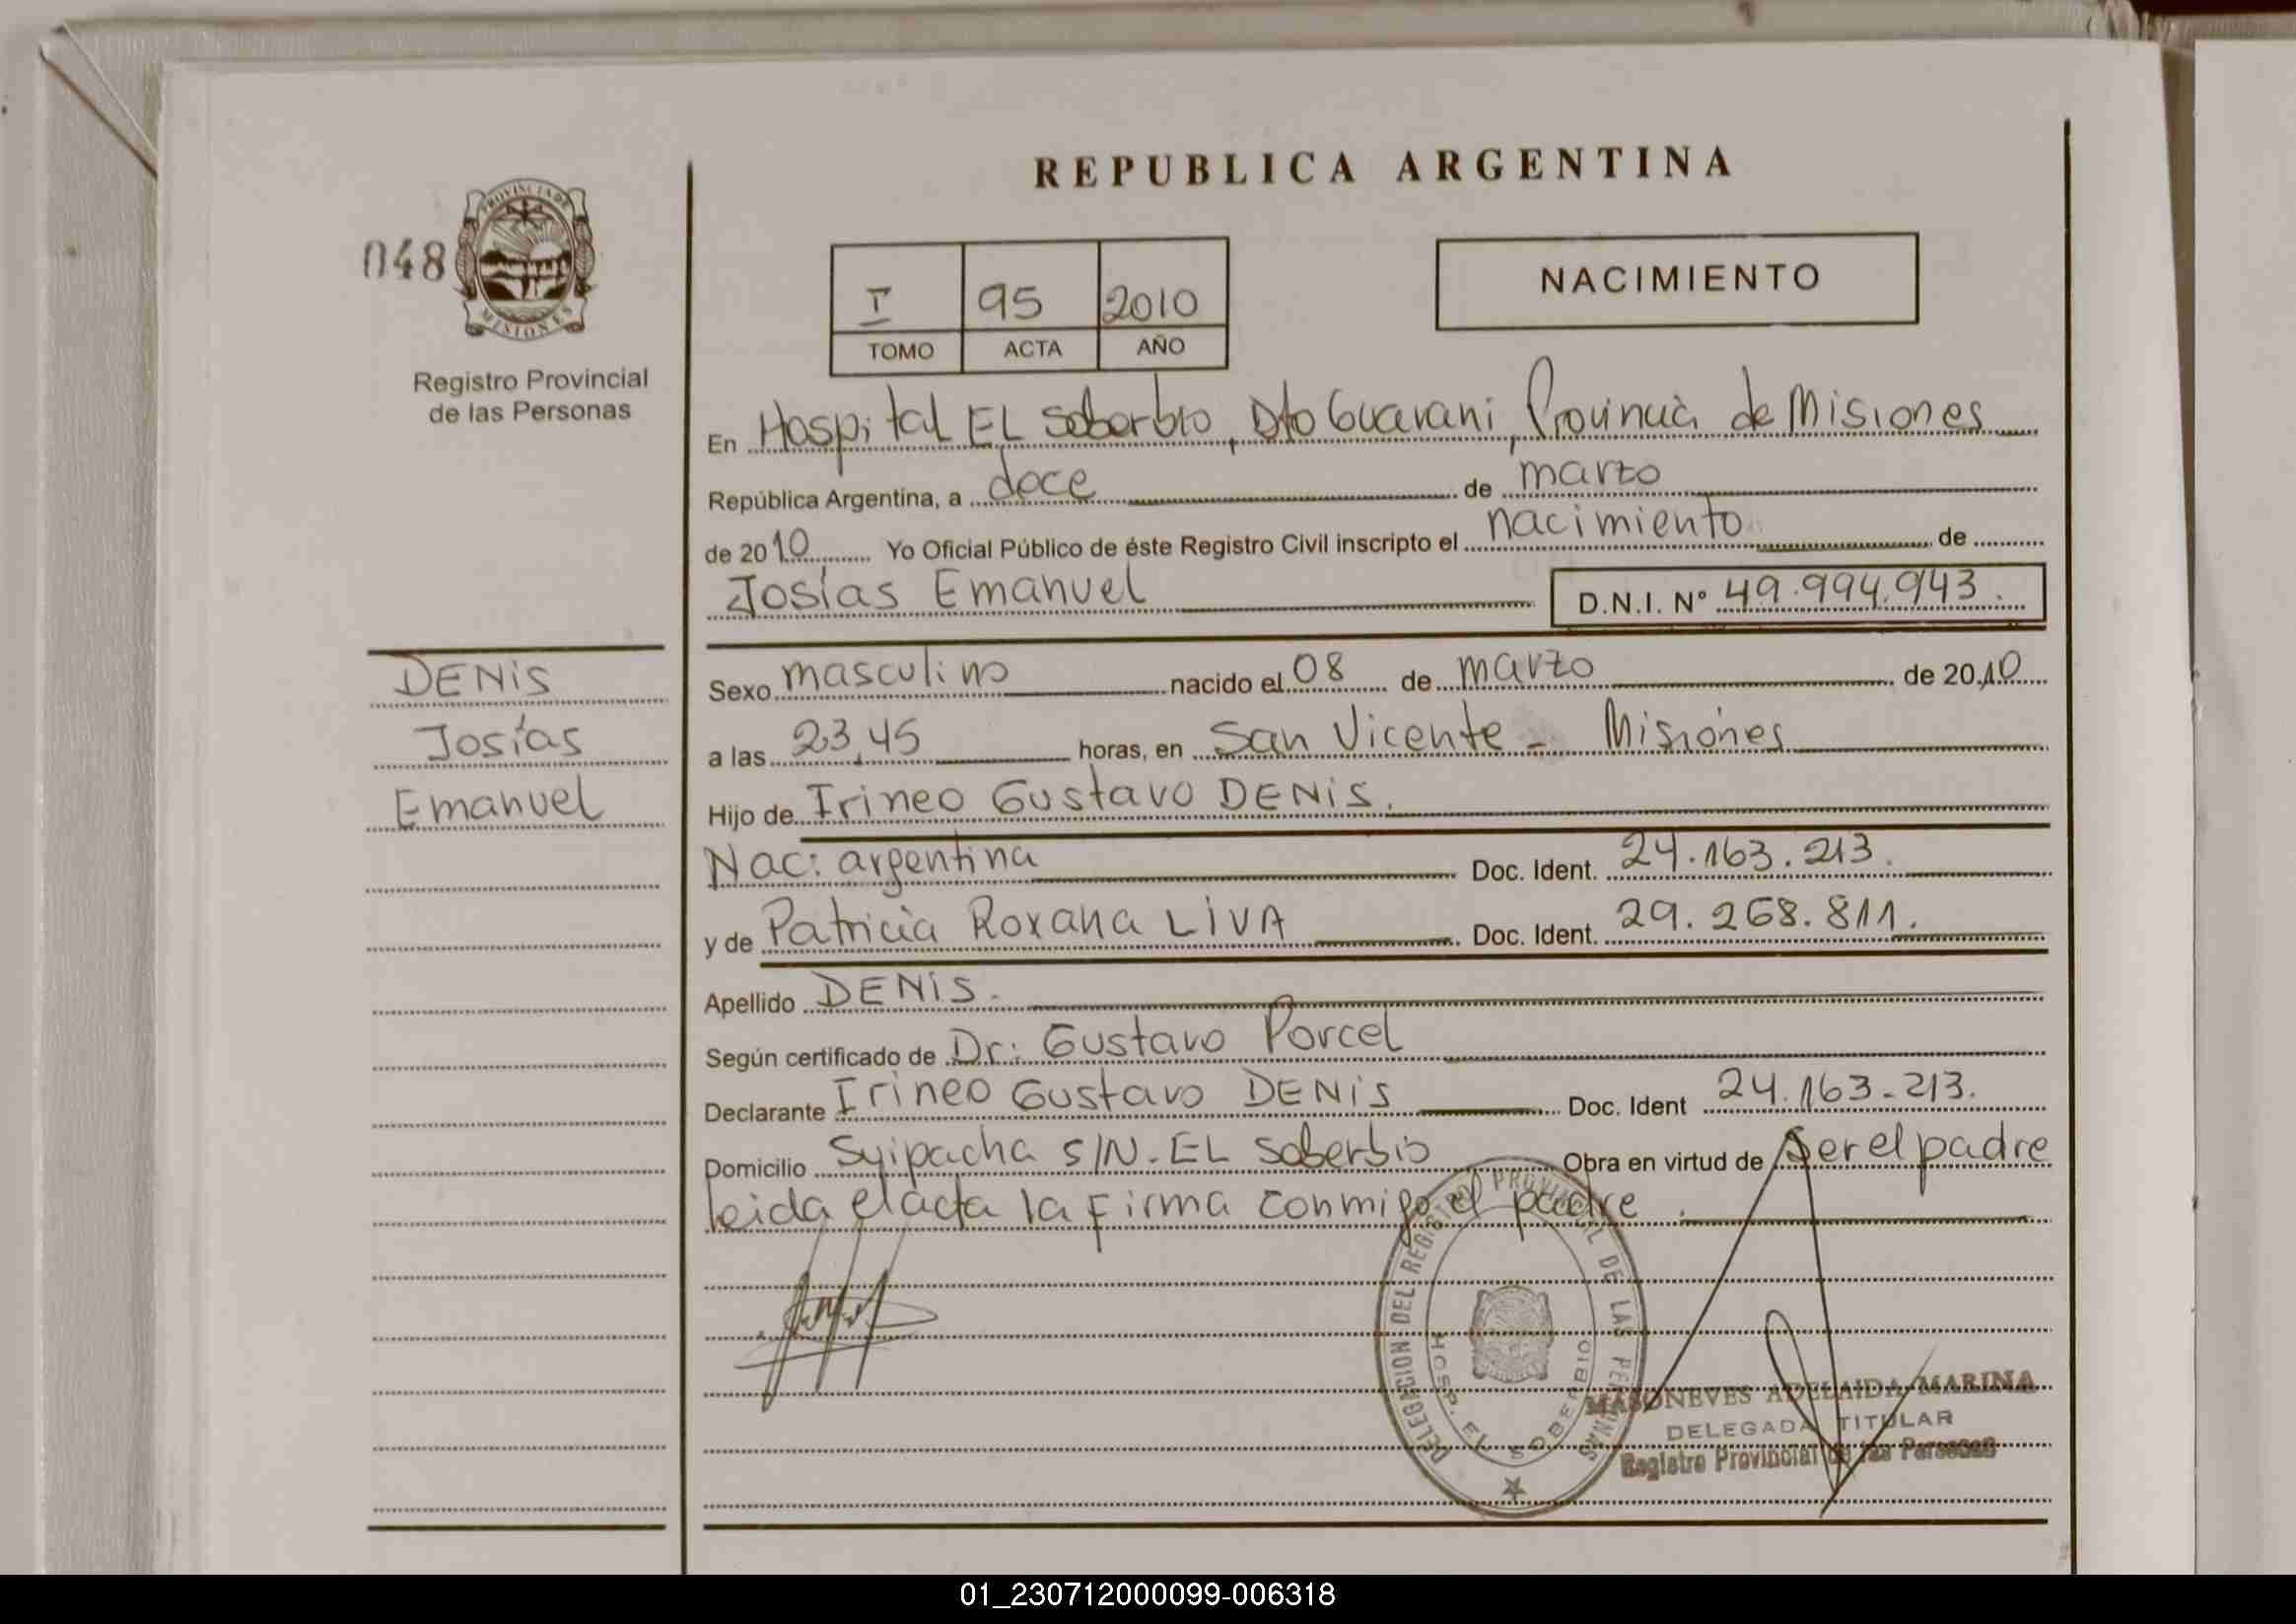 REPUBLICA ARGENTINA
048
PROVINCIA DE
MISIONES
Registro Provincial
de las Personas
I 95 2010
TOMO ACTA AÑO
NACIMIENTO
En Hospital EL Soberbio, Dto Guarani, Provincia de Misiones
República Argentina, a doce de marzo
de 2010 Yo Oficial Público de éste Registro Civil inscripto el nacimiento de
Josías Emanuel D.N.I. Nº 49.994.943.
DENIS
Josías
Emanuel
Sexo masculino nacido el 08 de marzo de 2010
a las 23,45 horas, en San Vicente - Misiones
Hijo de Irineo Gustavo DENIS.
Nac: argentina Doc. Ident. 24.163.213.
y de Patricia Roxana LIVA Doc. Ident. 29.268.811.
Apellido DENIS.
Según certificado de Dr: Gustavo Porcel
Declarante Irineo Gustavo DENIS Doc. Ident 24.163-213.
Domicilio Syipacha S/N. EL Soberbio Obra en virtud de Ser el padre
leida el acta la Firma conmigo el padre.
DELEGACION DEL REGISTRO PROVINCIAL DE LAS PERSONAS
HOSP. EL SOBERBIO
MASONEVES ADELAIDA MARINA
DELEGADA TITULAR
Registro Provincial de las Personas
01_230712000099-006318